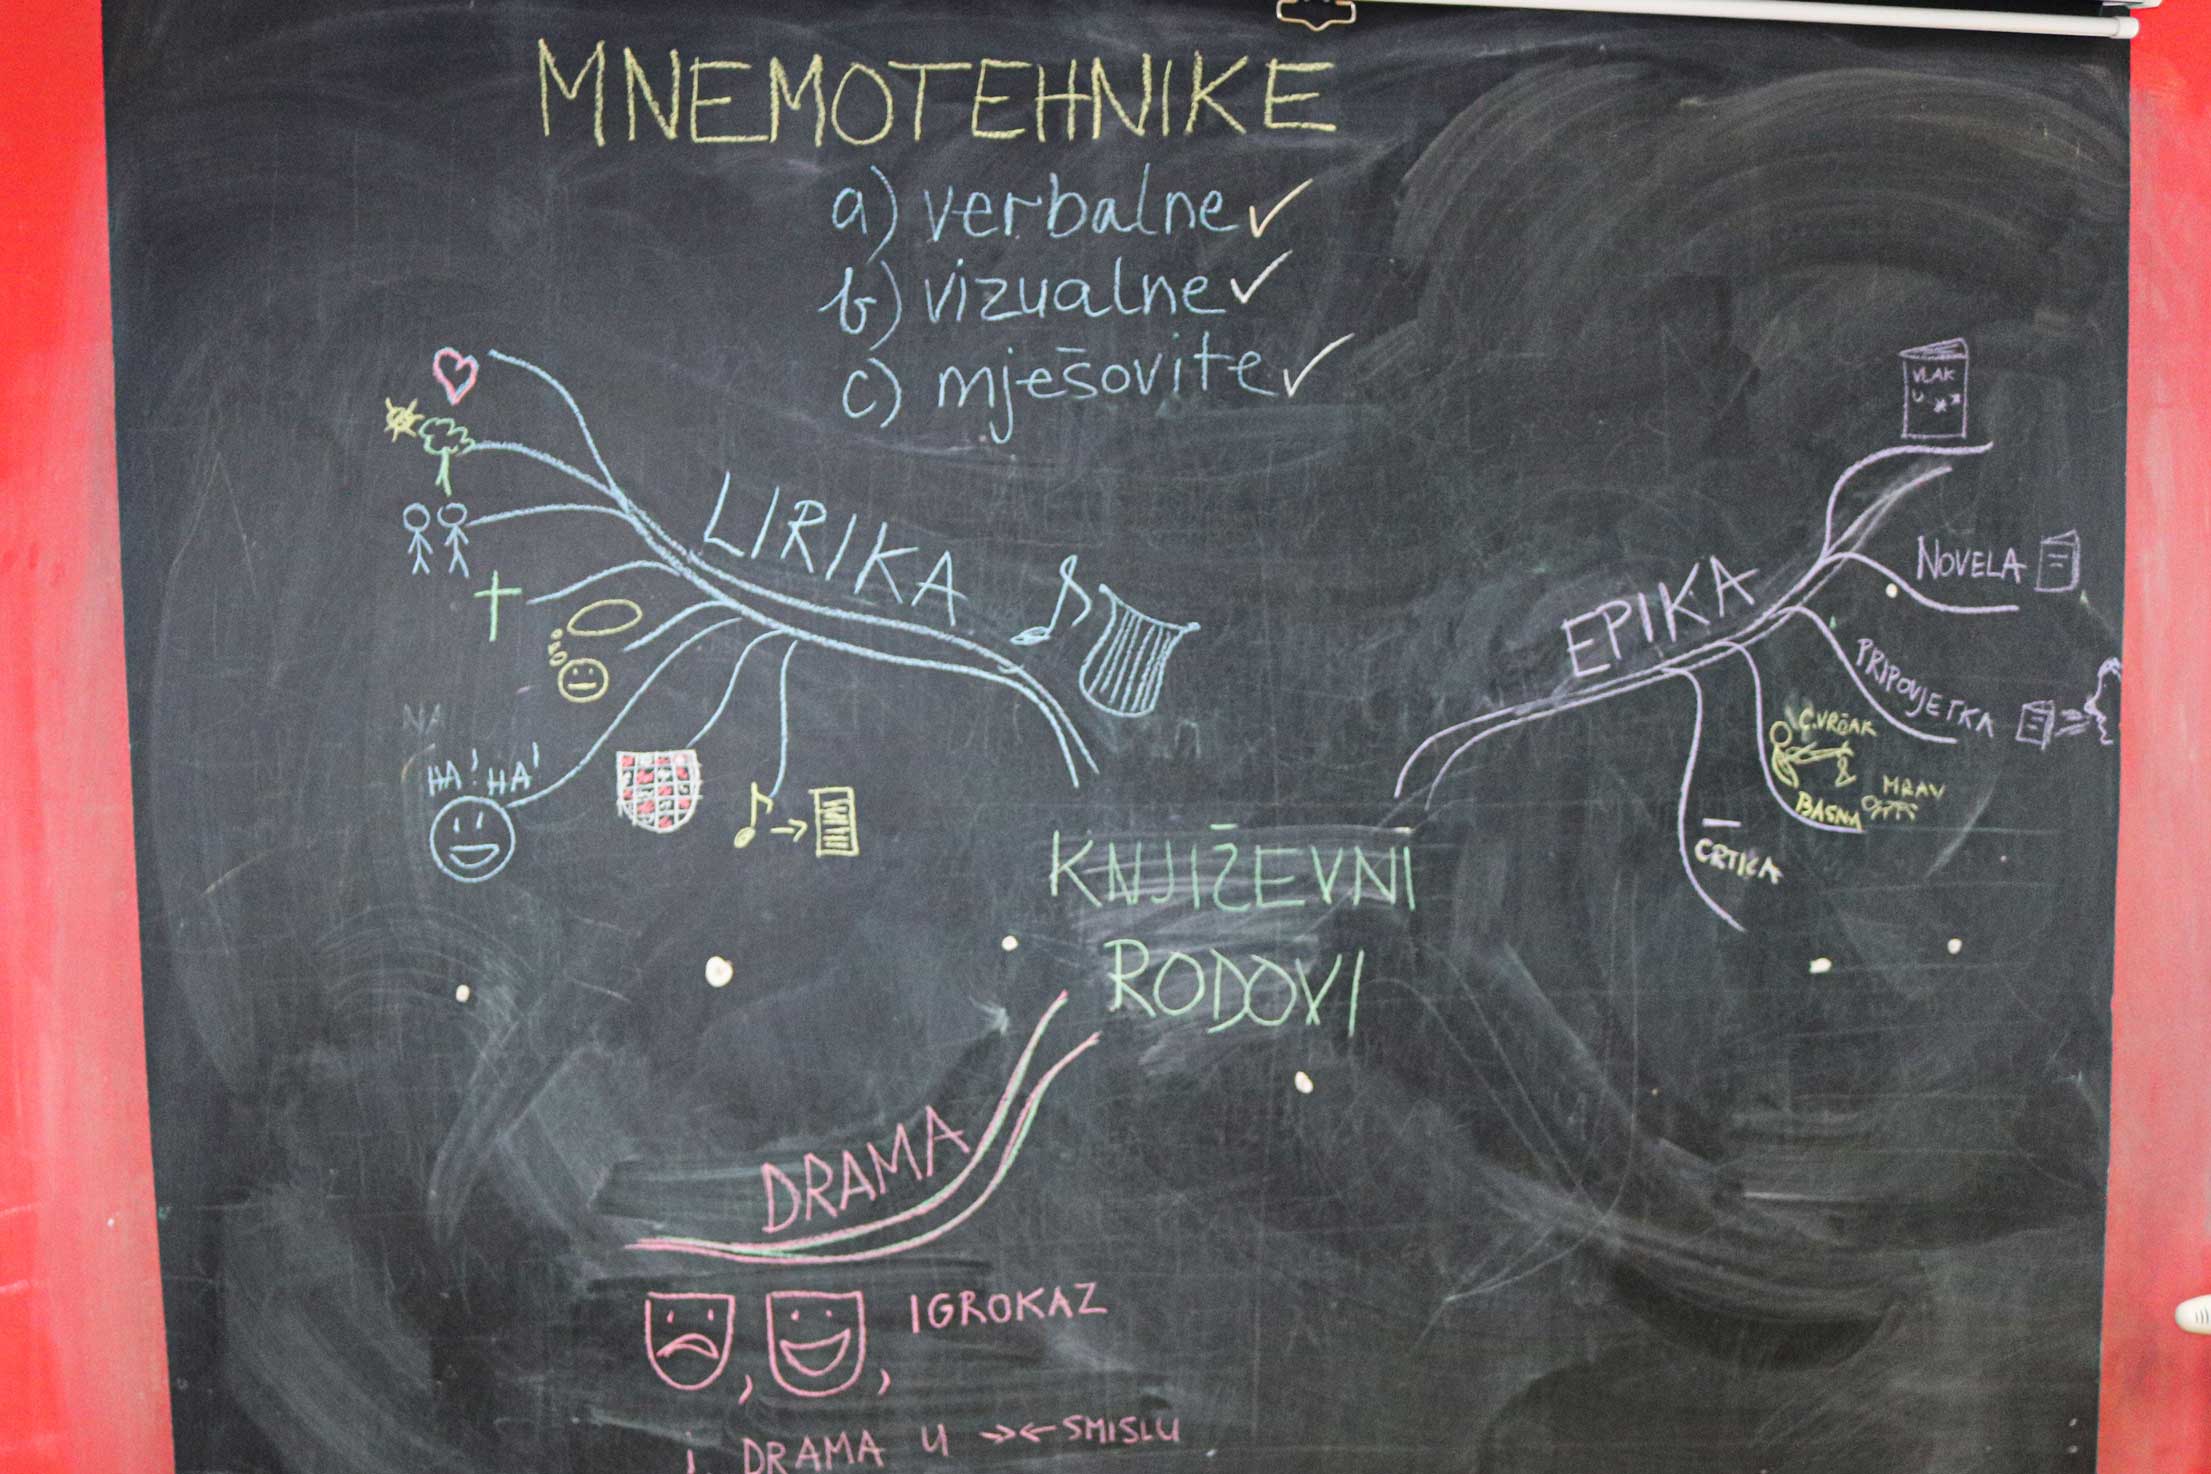 MNEMOTEHNIKE
a) verbalne ✓
b) vizualne ✓
c) mješovite ✓
LIRIKA
HA! HA!
EPIKA
VLAK
U
NOVELA
PRIPOVJETKA
C.VRČAK
MRAV
BASNA
CRTICA
KNJIŽEVNI
RODOVI
DRAMA
, , IGROKAZ
i DRAMA U →← SMISLU